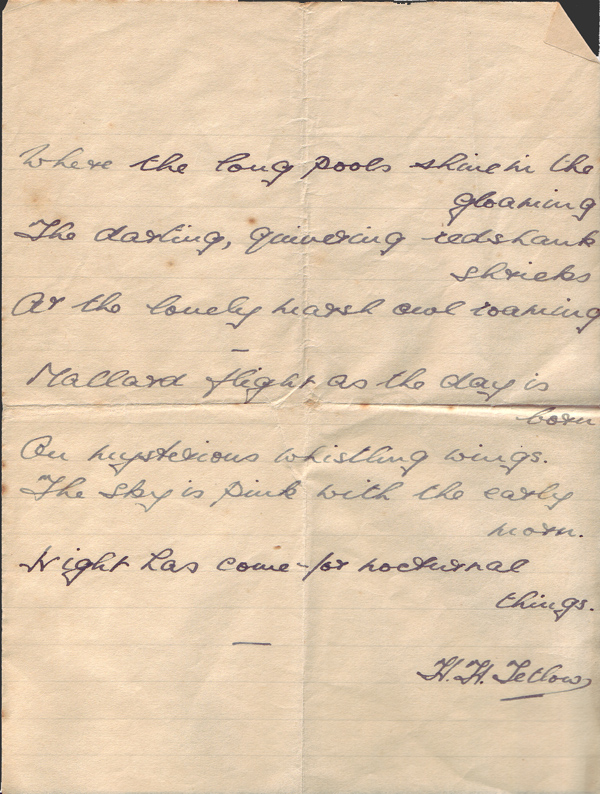 Where the long pools shine in the
gloaming
The darling, quivering redshank
shrieks
At the lonely marsh owl roaming
–
Mallard flight as the day is
born
On mysterious whistling wings.
The sky is pink with the early
morn.
Night has come for nocturnal
things.
—
H. H. Tetlow